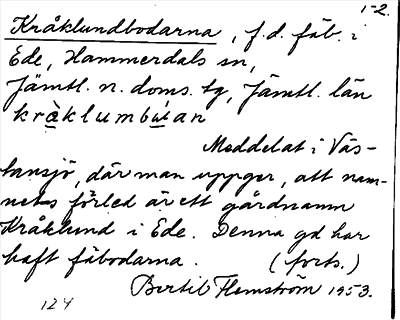 1-2.
Kråklundbodarna, f.d. fäb. i
Ede, Hammerdals sn,
Jämtl. n. doms. tg, Jämtl. län
kràklumbẃan
Meddelat i Väs-
tansjö, där man uppger, att nam-
nets förled är ett gårdnamn
Kråklund i Ede. Denna gd har
haft fäbodarna. (forts.)
Bertil Flemström 1953.
124